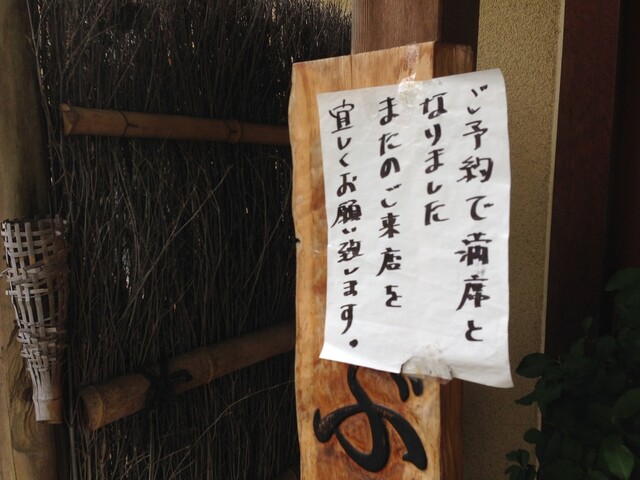 ご予約で満席と
なりました
またのご来店を
宜しくお願い致します。
ぶ